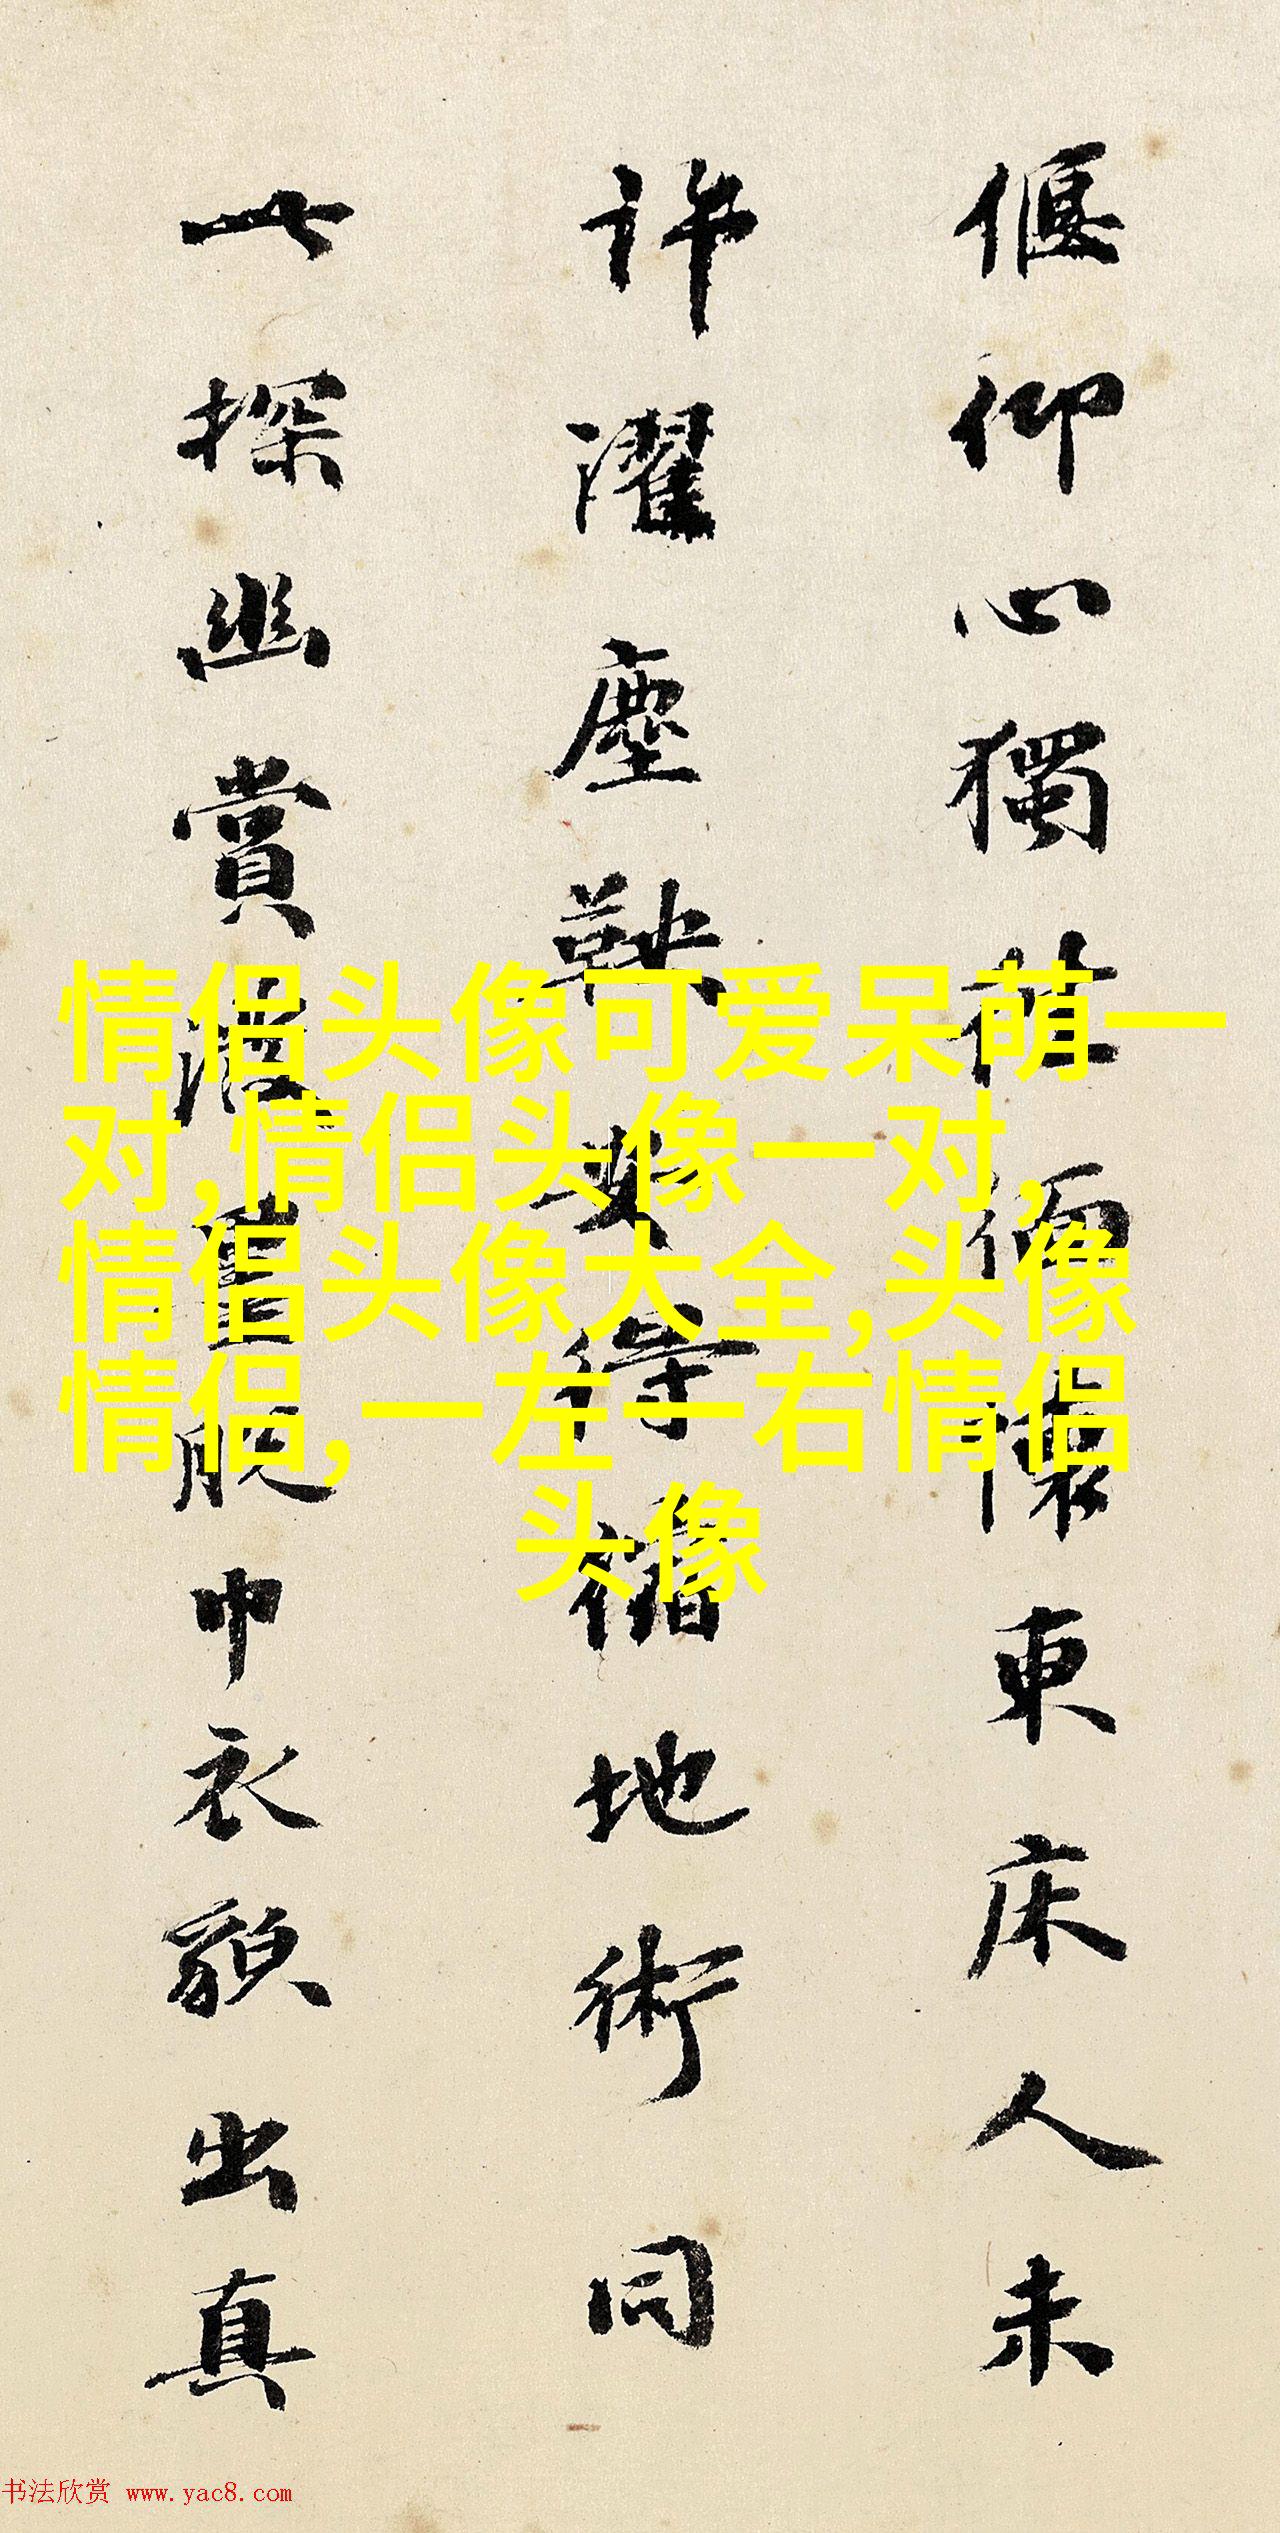 偃仰心獨在緬懷東床人未
許濯塵鞅安得縮地術同
一探幽賞濃舊脫巾衣貌出真
情侣头像可爱呆萌一
对,情侣头像一对,
情侣头像大全,头像
情侣,一左一右情侣
头像
书法欣赏 www.yac8.com